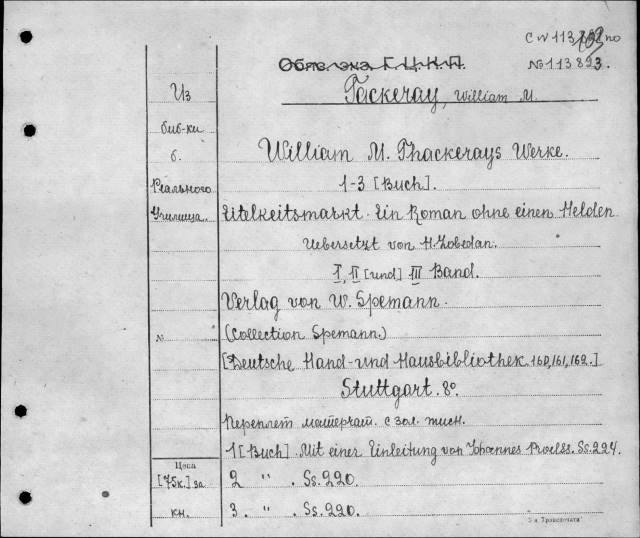 С №113892 по
№113893.
Обяс. экз. Г.Ц.К.П.
Tackeray, William M.
Из
биб-ки
б.
Реального
Училища.
William M. Thackerays Werke.
1-3 [Buch].
Eitelkeitsmarkt. Ein Roman ohne einen Helden
Uebersetzt von H. Zobedan.
I, II [und] III Band.
Verlag von W. Spemann.
№ (Collection Spemann.)
[Deutsche Hand-und Hausbibliothek. 160, 161, 162.]
Stuttgart. 8º.
Переплет матерчат. с зол. тисн.
1 [Buch]. Mit einer Einleitung von Johannes Proelss. Ss. 224.
Цена
[75к.] за 2 " . Ss. 220.
кн. 3. " . Ss. 220.